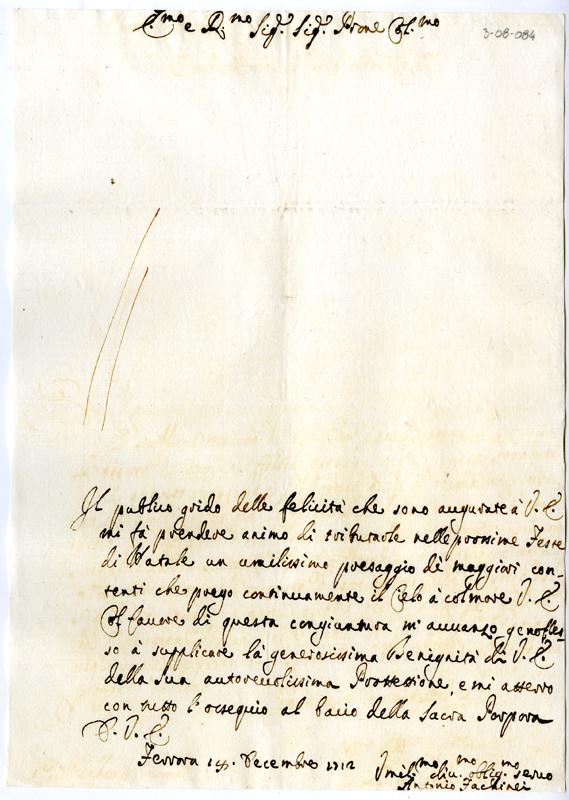 E.mo e R.mo Sig.r Sig.r Prone Col.mo
3-08-084
Il publico grido delle felicità che sono augurate à V. E.
mi fà prendere animo di tributarle nelle prossime Feste
di Natale un umilissimo presaggio de maggiori con-
tenti che prego continuamente il Cielo à colmare V. E.
Col favore di questa congiuntura m'auuanzo genofles-
so à supplicare la generosissima Benignità di V. E.
della Sua autoreuolissima Prottettione, e mi atterro
con tutto l'ossequio al bacio della Sacra Porpora
D. V. E.
Ferrara Decembre 1712
Umil.mo diu.mo oblig.mo seruo
Antonio Fachinei